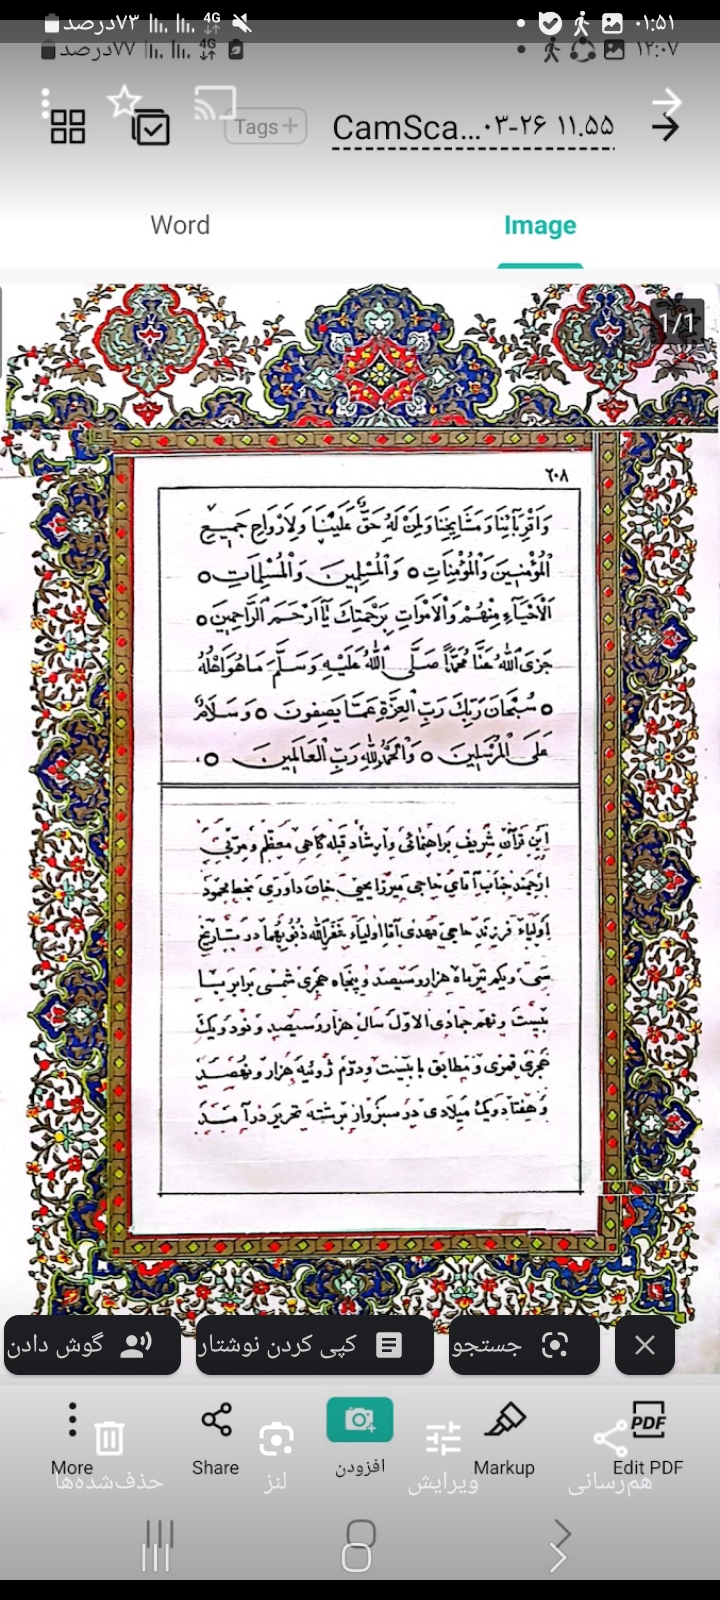 ۰۱:۵۱
۷۳درصد 4G
۱۲:۰۷
۷۷درصد 4G
CamSca...۰۳-۲۶ ۱۱.۵۵
Tags+
Word
Image
1/1
۲۰۸
وَاَقْرِبَآئِنَا وَمَشَایِخِنَا وَلِمَنْ لَهُ حَقٌّ عَلَیْنَا وَلِاَرْوَاحِ جَمِیعِ
الْمُؤْمِنِینَ وَالْمُؤْمِنَاتِ ۝ وَالْمُسْلِمِینَ وَالْمُسْلِمَاتِ ۝
اَلْاَحْیَآءِ مِنْهُمْ وَالْاَمْوَاتِ بِرَحْمَتِكَ یَآ اَرْحَمَ الرَّاحِمِینَ ۝
جَزَی اللّٰهُ عَنَّا مُحَمَّدًا صَلَّی اللّٰهُ عَلَیْهِ وَسَلَّمَ مَا هُوَ اَهْلُهُ
۝ سُبْحَانَ رَبِّكَ رَبِّ الْعِزَّةِ عَمَّا یَصِفُونَ ۝ وَسَلَامٌ
عَلَی الْمُرْسَلِینَ ۝ وَالْحَمْدُ لِلّٰهِ رَبِّ الْعَالَمِینَ ۝
این قرآن شریف براهنمائی وارشاد قبله گاهی معظم و مربی
ارجمند جناب آقای حاجی میرزا یحیی خان داوری بخط محمود
اولیاء فرزند حاجی مهدی آقا اولیاء غفرالله ذنوبهما در بتاریخ
سی ویکم تیرماه هزار و سیصد و پنجاه هجری شمسی برابر با
بیست و نهم جمادی الاول سال هزار و سیصد و نود و یک
هجری قمری و مطابق با بیست و دوم ژوئیه هزار و نهصد
و هفتاد و یک میلادی در سبزوار برشته تحریر درآمد
جستجو
کپی کردن نوشتار
گوش دادن
More
Share
افزودن
Markup
PDF
Edit PDF
حذف‌شده‌ها
لنز
ویرایش
هم‌رسانی